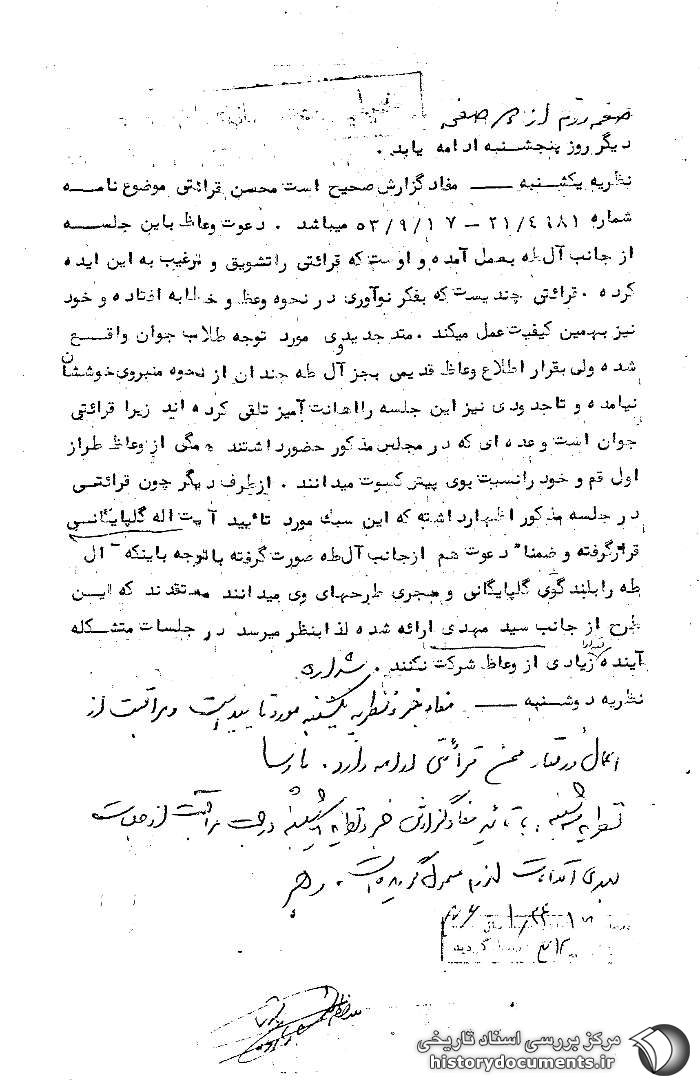 صفحه دوم از صفحه
دیگر روز پنجشنبه ادامه یابد .
نظریه یکشنبه ــ مفاد گزارش صحیح است محسن قرائتی موضوع نامه
شماره ۲۱/۴۶۸۱ – ۵۳/۹/۱۷ میباشد . دعوت وعاظ باین جلسه
از جانب آل طه بعمل آمده و اوست که قرائتی را تشویق و ترغیب به این ایده
کرده . قرائتی چندیست که بفکر نوآوری در نحوه وعظ و خطابه افتاده و خود
نیز بهمین کیفیت عمل میکند . متد جدید وی مورد توجه طلاب جوان واقع
شده ولی بقرار اطلاع وعاظ قدیمی بجز آل طه چندان از نحوه منبر وی خوششان
نیامده و تا حدودی نیز این جلسه را اهانت آمیز تلقی کرده اند زیرا قرائتی
جوان است و عده ای که در مجلس مذکور حضور داشتند همگی از وعاظ طراز
اول قم و خود را نسبت بوی پیش کسوت میدانند . از طرف دیگر چون قرائتی
در جلسه مذکور اظهار داشته که این سبک مورد تائید آیت اله گلپایگانی
قرار گرفته و ضمنا" دعوت هم از جانب آل طه صورت گرفته با توجه باینکه آل
طه را بلندگوی گلپایگانی و مجری طرحهای وی میدانند معتقدند که این
طرح از جانب سید مهدی ارائه شده لذا بنظر میرسد در جلسات متشکله
آینده زیادی از وعاظ شرکت نکنند .
نظریه دوشنبه ــ مفاد خبر و نظریه یکشنبه مورد تایید است و مراقبت از
اعمال و رفتار محسن قرائتی ادامه دارد . پارسا
نظریه سه شنبه . با تائید مفاد گزارش خبر و نظریه یکشنبه در جهت مراقبت از جلسات
بعدی اقدامات لازم معمول گردیده است . رهبر
گردید
مرکز بررسی اسناد تاریخی
historydocuments.ir